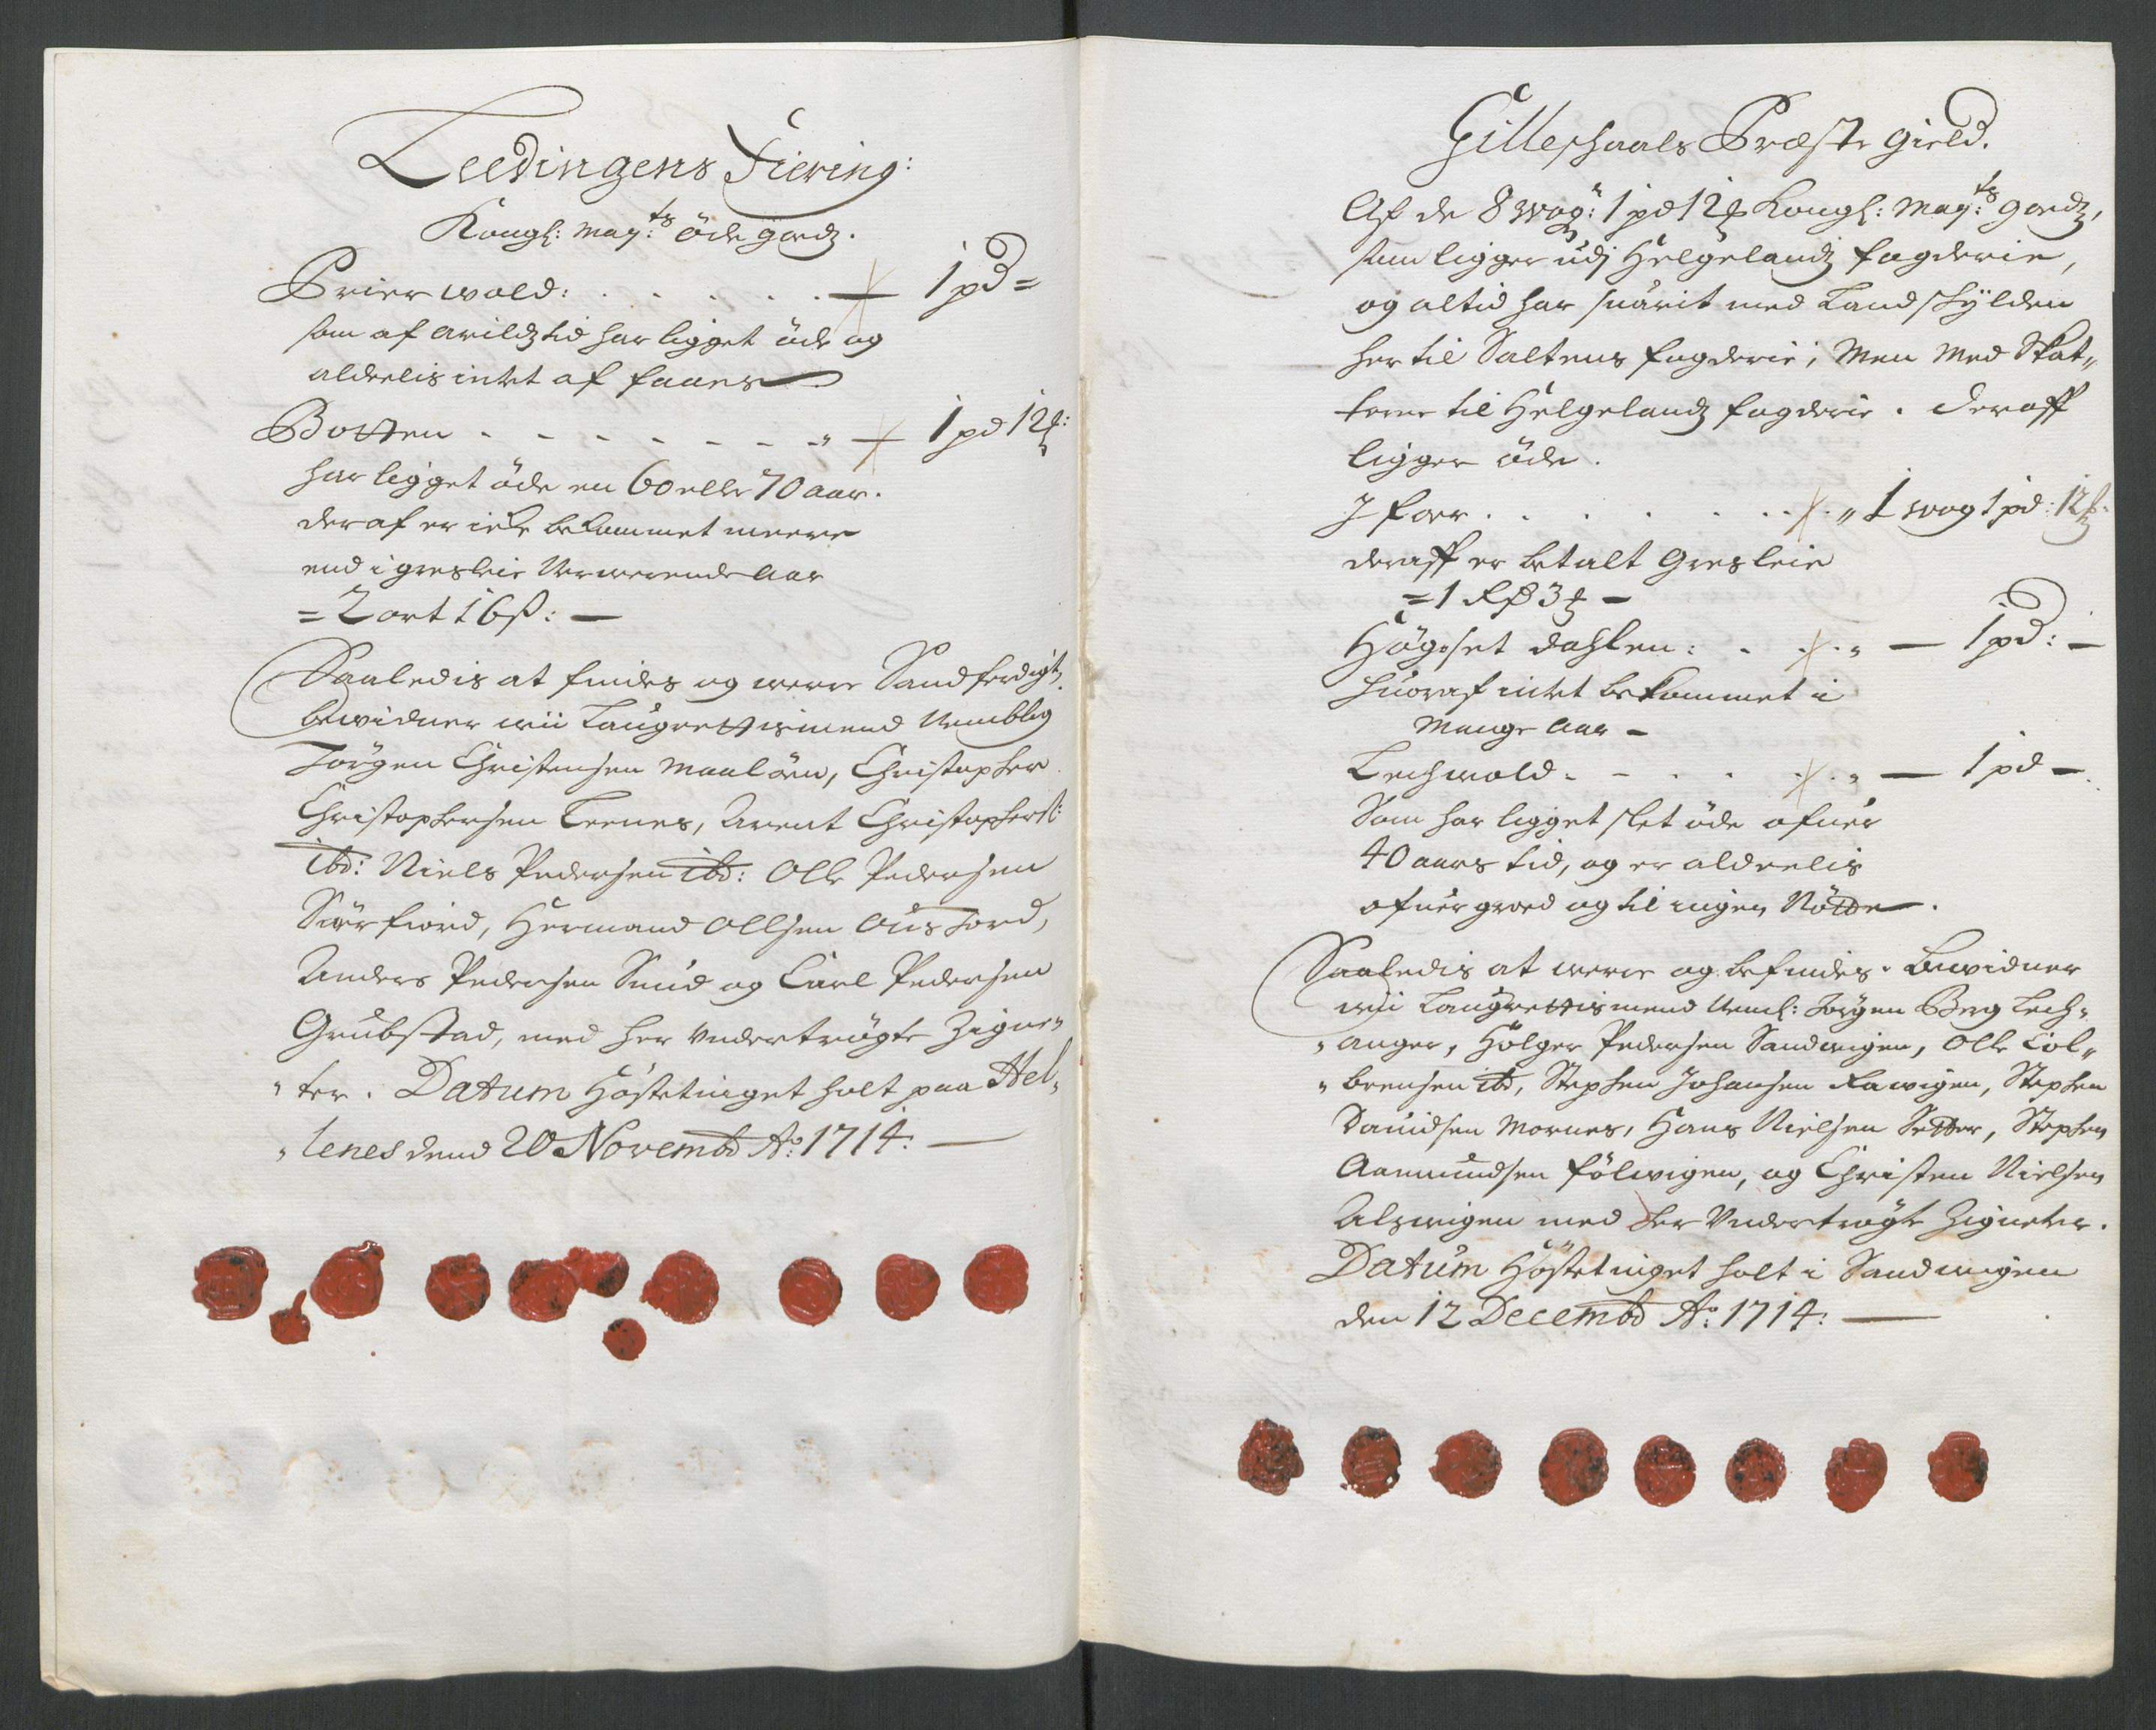 Leedingens Fiering:
Kongl: May:ts öde godz.
Brierwold: . . . . . . — 1 pd =
som af arilds tid har ligget öde og
aldeelis intet af faaes
Botten - - - - - - - „ — 1 pd 12 ℔:
har ligget öde en 60 eller 70 aar.
der af er icke bekommet meere
end i gresleie Nerwerende Aar
= 2 ort 16 ß: —
Saaledis at findes og were Sandferdigt,
bewidner wii Laugrettismend Nemblig
Jörgen Christensen Maalöen, Christopher
Christophersen Leenes, Arent Christophers:
ibd: Niels Pedersen ibd: Olle Pedersen
Siörfiord, Hermand Ollsen Ousford,
Anders Pedersen Sund og Carl Pedersen
Grubstad, med her Undertrögte Zigne„
„ter. Datum Höstetinget holt paa Hel„
„lenes dend 20 Novembd Ao: 1714. —
Gilleschaals Præste Gield.
Af de 8 wog: 1 pd 12 ℔ Kongl: May:ts godz,
som ligger udj Helgelandz fogderie,
og altid har suarit med Landskylden
her til Saltens fogderie; Men Med Skat„
terne til Helgelandz fogderie. Deraff
ligger öde.
J forr . . . . . . . „ 1 wog 1 pd: 12 ℔.
deraff er betalt Gresleie
= 1 Rd 3 ℔ —
Högset dahlen: . . . „ — 1 pd: —
huoraf intet bekommet i
Mange Aar —
Lechwold - - . . . „ — 1 pd —
Som har ligget slet öde ofuer
40 aars tid, og er aldeelis
ofuergroed og til ingen Nötte.
Saaledis at were og befindes. Bewidner
wii Laugrettismend Neml: Jörgen Berg Lech„
„anger, Holger Pedersen Sandwigen, Olle Col„
„bensen ibd, Stephen Johansen Rawigen, Stephen
Dauidsen Mornes, Hans Nielsen Setter, Stephen
Aamundsen Fölwigen, og Christen Nielsen
Alswigen med her Undertrögte Zigneter.
Datum Höstetinget holt i Sandwigen
den 12 Decembd Ao: 1714: —